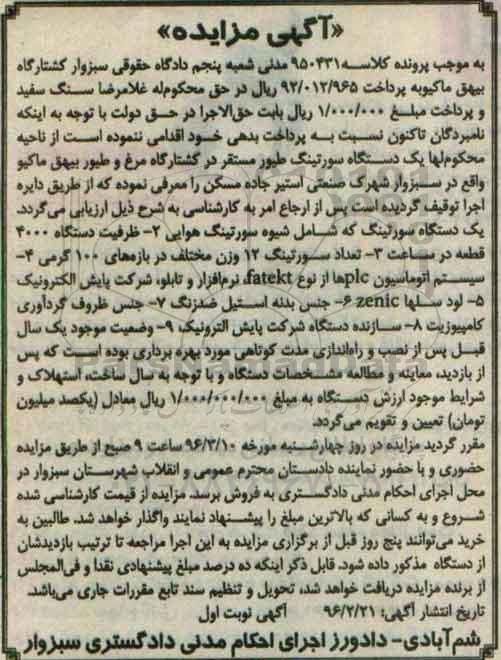 «آگهی مزایده»
به موجب پرونده کلاسه ۹۵۰۴۳۱ مدنی شعبه پنجم دادگاه حقوقی سبزوار کشتارگاه
بیهق ماکیوبه پرداخت ۹۲/۰۱۲/۹۶۵ ریال در حق محکوم‌له غلامرضا سنگ سفید
و پرداخت مبلغ ۱/۰۰۰/۰۰۰ ریال بابت حق‌الاجرا در حق دولت با توجه به اینکه
نامبردگان تاکنون نسبت به پرداخت بدهی خود اقدامی ننموده است از ناحیه
محکوم‌لها یک دستگاه سورتینگ طیور مستقر در کشتارگاه مرغ و طیور بیهق ماکیو
واقع در سبزوار شهرک صنعتی استیر جاده مسکن را معرفی نموده که از طریق دایره
اجرا توقیف گردیده است پس از ارجاع امر به کارشناسی به شرح ذیل ارزیابی می‌گردد.
یک دستگاه سورتینگ که شامل شیوه سورتینگ هوایی ۲- ظرفیت دستگاه ۴۰۰۰
قطعه در ساعت ۳- تعداد سورتینگ ۱۲ وزن مختلف در بازه‌های ۱۰۰ گرمی ۴-
سیستم اتوماسیون plcها از نوع fatekt، نرم‌افزار و تابلو، شرکت پایش الکترونیک
۵- لود سلها zenic ۶- جنس بدنه استیل ضدزنگ ۷- جنس ظروف گردآوری
کامپیوزیت ۸- سازنده دستگاه شرکت پایش الترونیک ۹- وضعیت موجود یک سال
قبل پس از نصب و راه‌اندازی مدت کوتاهی مورد بهره برداری بوده است که پس
از بازدید، معاینه و مطالعه مشخصات دستگاه و با توجه به سال ساخت، استهلاک و
شرایط موجود ارزش دستگاه به مبلغ ۱/۰۰۰/۰۰۰/۰۰۰ ریال معادل (یکصد میلیون
تومان) تعیین و تقویم می‌گردد.
مقرر گردید مزایده در روز چهارشنبه مورخه ۹۶/۳/۱۰ ساعت ۹ صبح از طریق مزایده
حضوری و با حضور نماینده دادستان محترم عمومی و انقلاب شهرستان سبزوار در
محل اجرای احکام مدنی دادگستری به فروش برسد. مزایده از قیمت کارشناسی شده
شروع و به کسانی که بالاترین مبلغ را پیشنهاد نمایند واگذار خواهد شد. طالبین به
خرید می‌توانند پنج روز قبل از برگزاری مزایده به این اجرا مراجعه تا ترتیب بازدیدشان
از دستگاه مذکور داده شود. قابل ذکر اینکه ده درصد مبلغ پیشنهادی نقدا و فی‌المجلس
از برنده مزایده دریافت خواهد شد، تحویل و تنظیم سند تابع مقررات جاری می‌باشد.
تاریخ انتشار آگهی: ۹۶/۲/۲۱ آگهی نوبت اول
شم‌آبادی- دادورز اجرای احکام مدنی دادگستری سبزوار